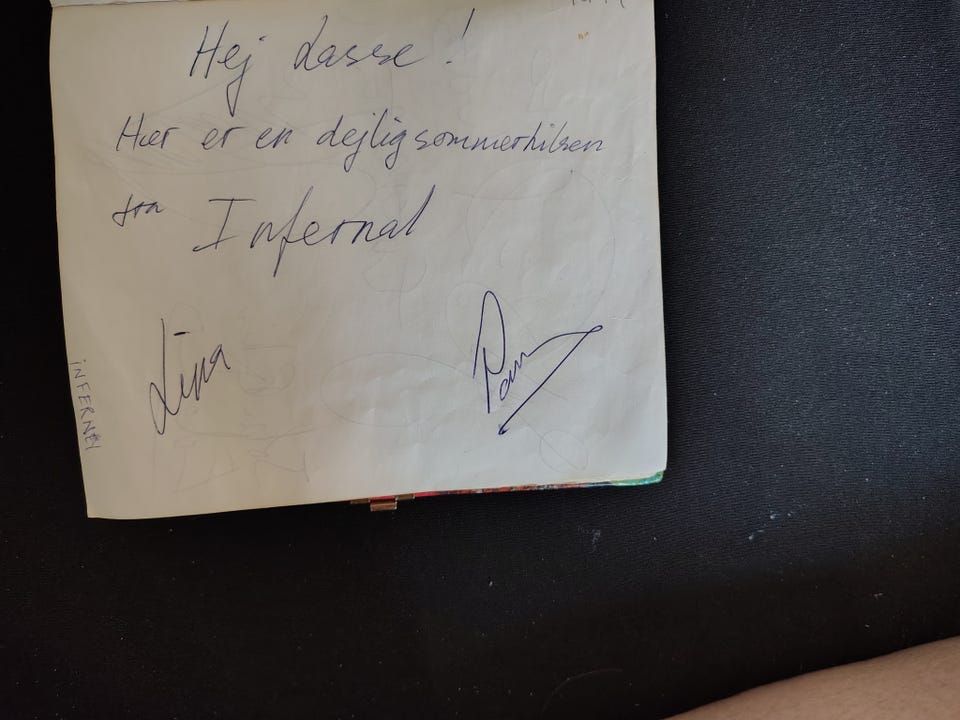 Hej Lasse!
Her er en dejlig sommerhilsen
fra Infernal
Lina
Paw
INFERNAL